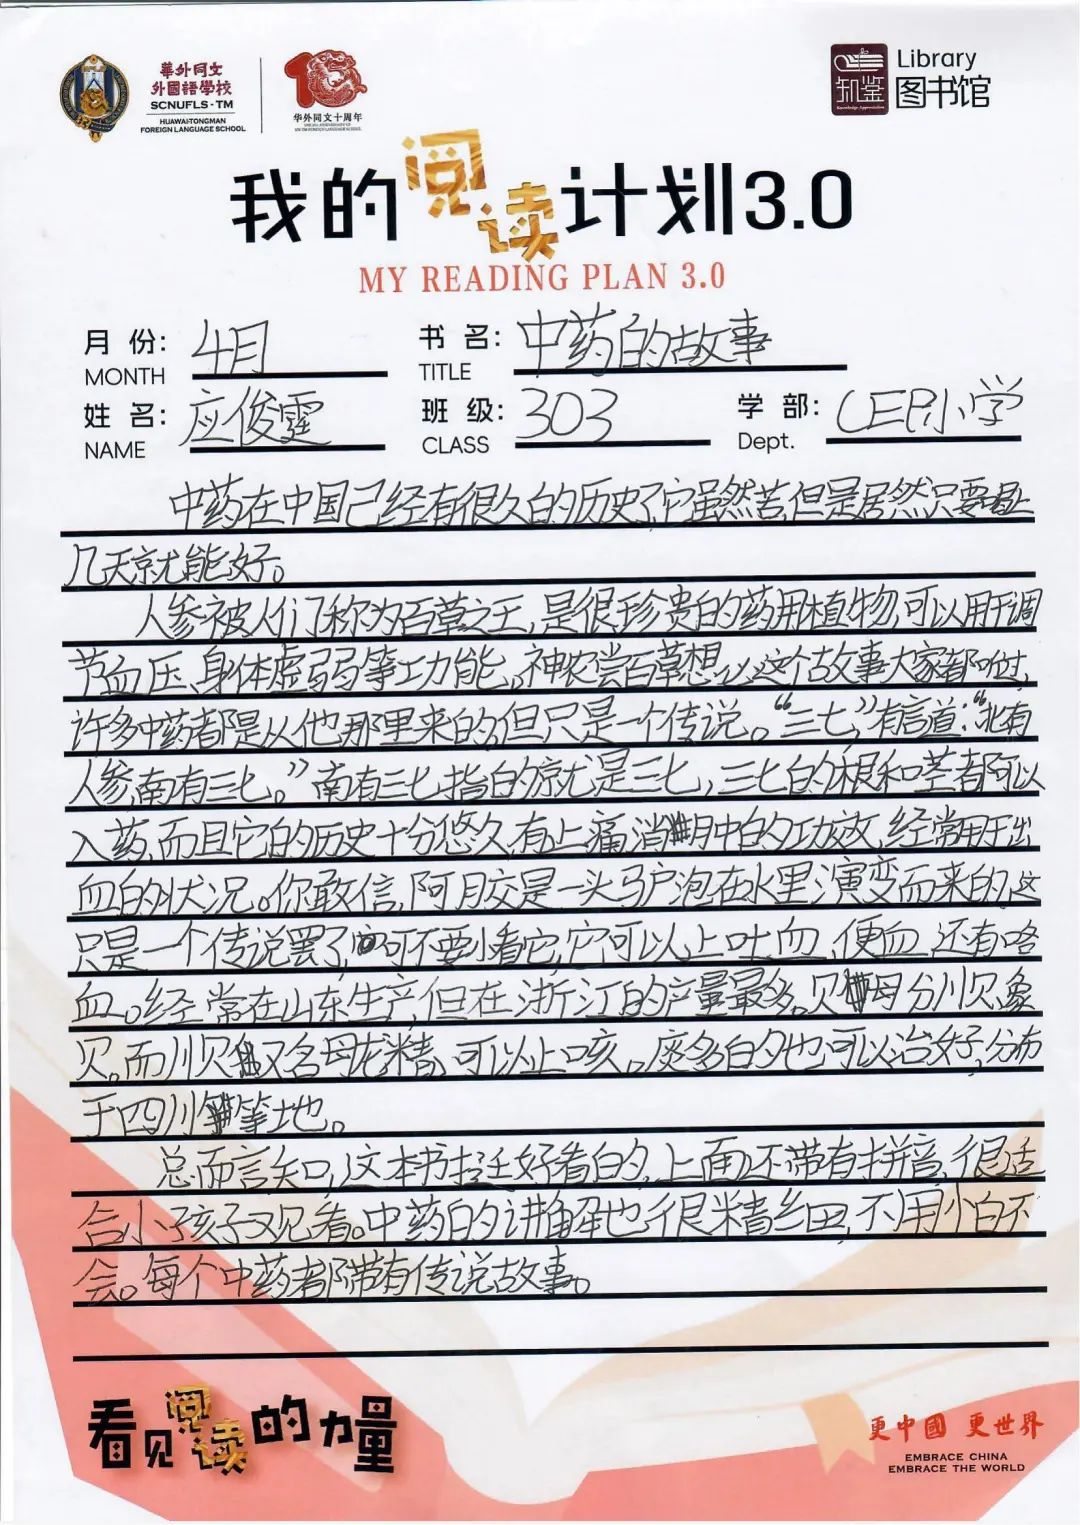 華外同文
外國語學校
SCNUFLS-TM
HUAWAI·TONGMAN
FOREIGN LANGUAGE SCHOOL
华外同文十周年
知鉴
Library
图书馆
我的阅读计划3.0
MY READING PLAN 3.0
月份: 4月 书名: 中药的故事
MONTH TITLE
姓名: 应俊霆 班级: 303 学部: CEP小学
NAME CLASS Dept.
中药在中国己经有很久的历史了,它虽然苦,但是居然只要喝上
几天就能好。
人参被人们称为百草之王,是很珍贵的药用植物,可以用于调
节血压、身体虚弱等功能。神农尝百草想必这个故事大家都听过,
许多中药都是从他那里来的,但只是一个传说。“三七,”有言道:“北有
人参,南有三七。”南有三七指的就是三七,三七的根和茎都可以
入药,而且它的历史十分悠久,有止痛消肿的功效,经常用于出
血的状况。你敢信,阿胶是一头驴泡在水里演变而来的,这
只是一个传说罢了,可不要小看它,它可以止吐血、便血,还有咯
血。经常在山东生产,但在浙江的产量最多。贝母分川贝、象
贝。而川贝又名母龙精,可以止咳。痰多的也可以治好,分布
于四川等地。
总而言知,这本书挺好看的,上面还带有拼音,很适
合小孩子观看。中药的讲解也很精细,不用怕不
会。每个中药都带有传说故事。
看见阅读的力量
更中國 更世界
EMBRACE CHINA
EMBRACE THE WORLD